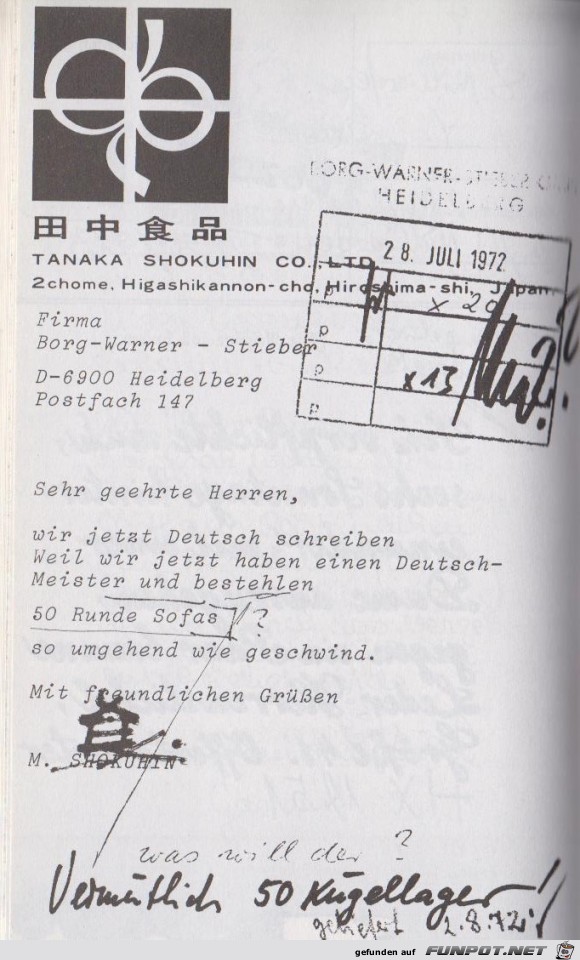 田中食品
TANAKA SHOKUHIN CO., LTD.
2chome, Higashikannon-cho, Hiroshima-shi, Japan.
BORG-WARNER-STIEBER
HEIDELBERG
28. JULI 1972
p
x 20
p
p
x 13
p
Firma
Borg-Warner - Stieber
D-6900 Heidelberg
Postfach 147
Sehr geehrte Herren,
wir jetzt Deutsch schreiben
Weil wir jetzt haben einen Deutsch-
Meister und bestehlen
50 Runde Sofas ?
so umgehend wie geschwind.
Mit freundlichen Grüßen
M. SHOKUHIN
was will der ?
Vermutlich 50 Kugellager!
geliefert 2.8.72
gefunden auf FUNPOT.NET